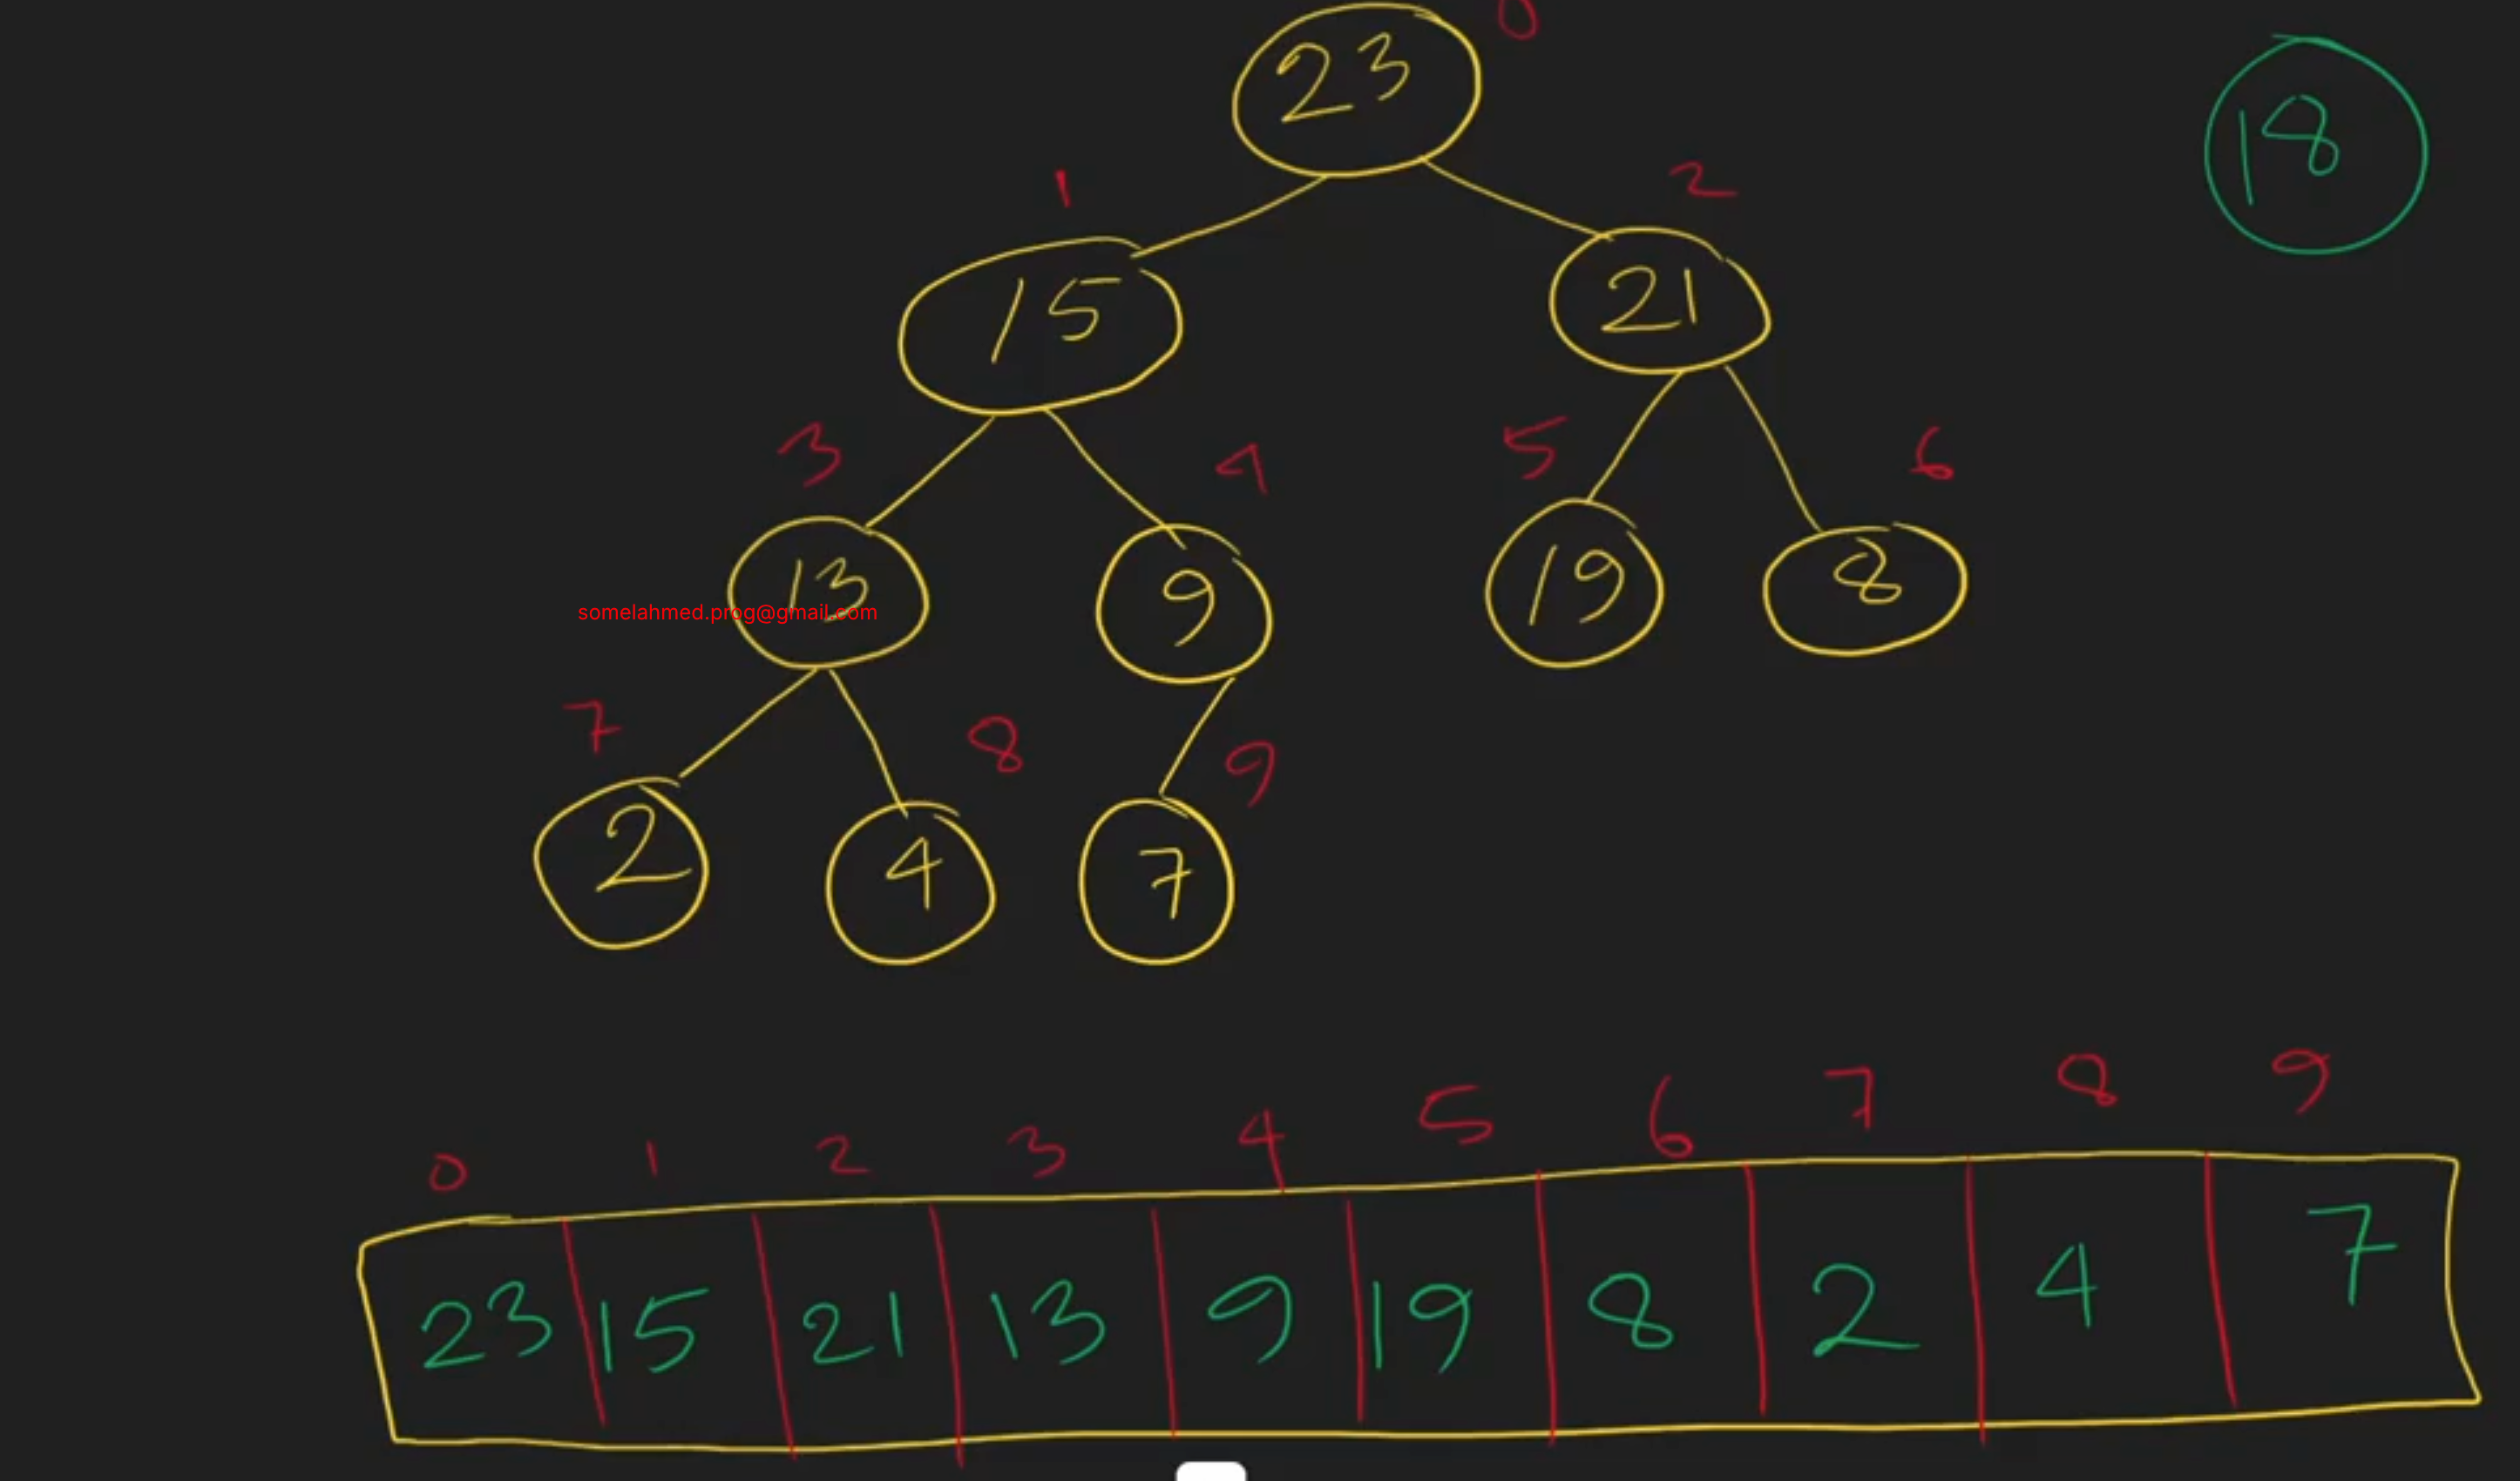 0
23
18
1
2
15
21
3
4
5
6
13
9
19
8
somelahmed.prog@gmail.com
7
8
9
2
4
7
0 1 2 3 4 5 6 7 8 9
23 15 21 13 9 19 8 2 4 7